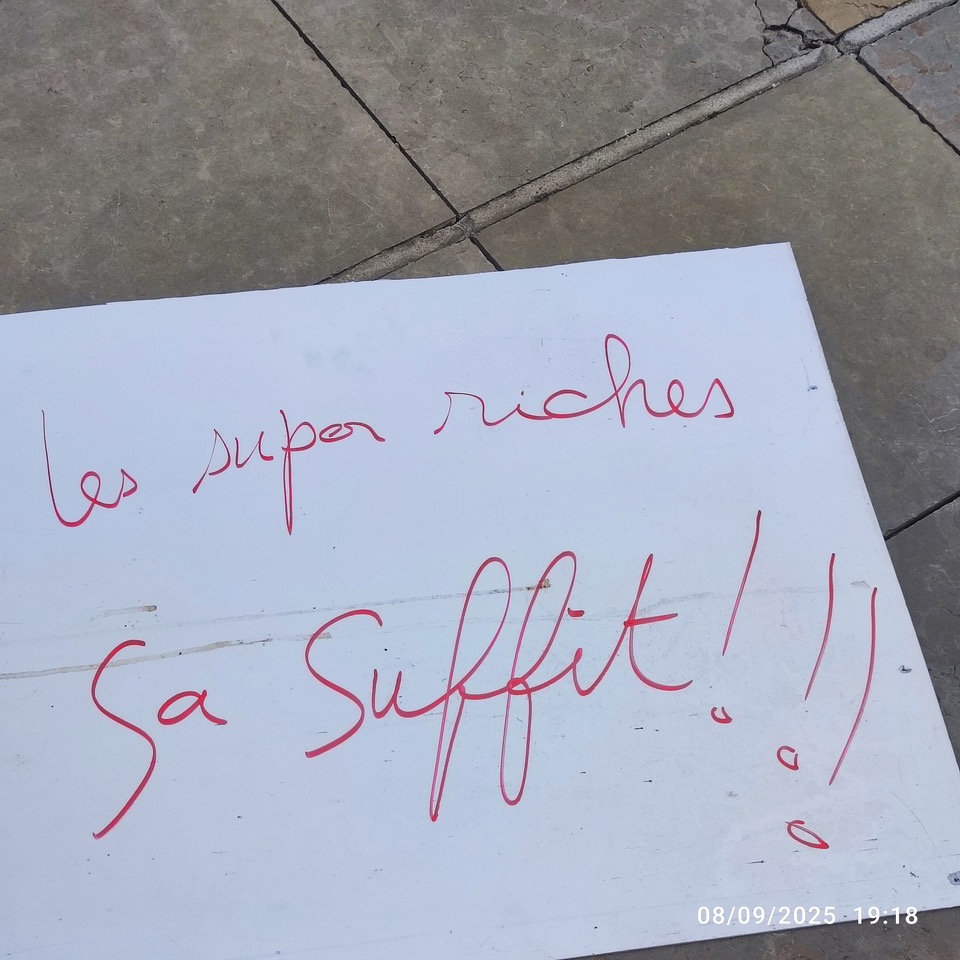 les super riches
ça suffit !!!
08/09/2025 19:18